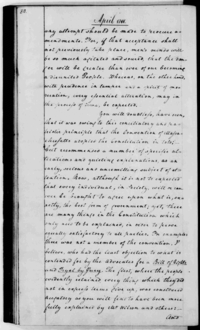 April 1788
any attempt should be made to procure a-
mendments. For, if that acceptance shall
not previously take place, men's minds will
be so much agitated and soured, that the dan-
ger will be greater than ever of our becoming
a disunited People. Whereas, on the other hand,
with prudence in temper and a spirit of mod-
eration, every essential alteration, may in
the process of time, be expected.
You will doubtless, have seen,
that it was owing to this conciliatory and pa-
triotic principle that the Convention of Massa-
chusetts adopted the constitution in toto;
but recommended a number of specific al-
terations and quieting explanations as an
early, serious and unremitting subject of at-
tention. Now, although it is not to be expected
that every individual, in Society, will or can
ever be brought to agree upon what is, ex-
actly, the best form of government; yet, there
are many things in the Constitution which
only need to be explained, in order to prove
equally satisfactory to all parties. For example:
there was not a member of the convention, I
believe, who had the least objection to what is
contended for by the Advocates for a Bill of Rights
and Tryal by Jury. The first, where the people e-
vidently retained every thing which they did
not in express terms give up, was considered
nugatory as you will find to have been more
fully explained by Mr. Wilson and others: